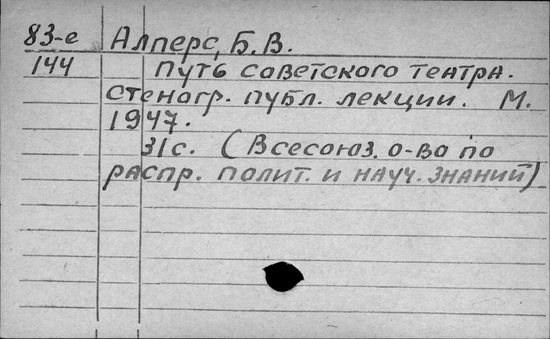 83-е Алперс, Б. В.
144 Путь советского театра.
Стеногр. публ. лекции. М.
1947.
31с. (Всесоюз. о-во по
распр. полит. и науч. знаний)